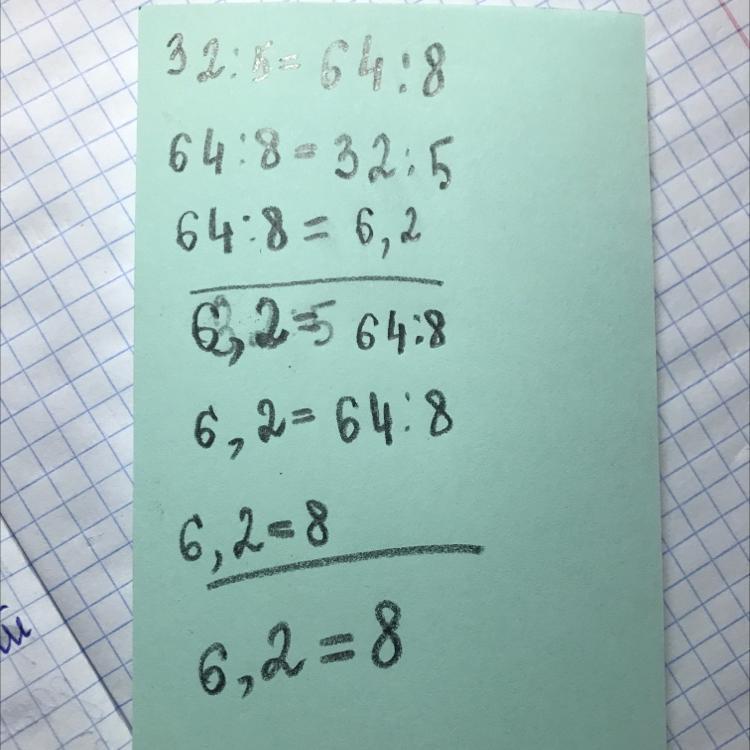 32:5=64:8
64:8=32:5
64:8=6,2
6,2= 64:8
6,2=64:8
6,2=8
6,2=8